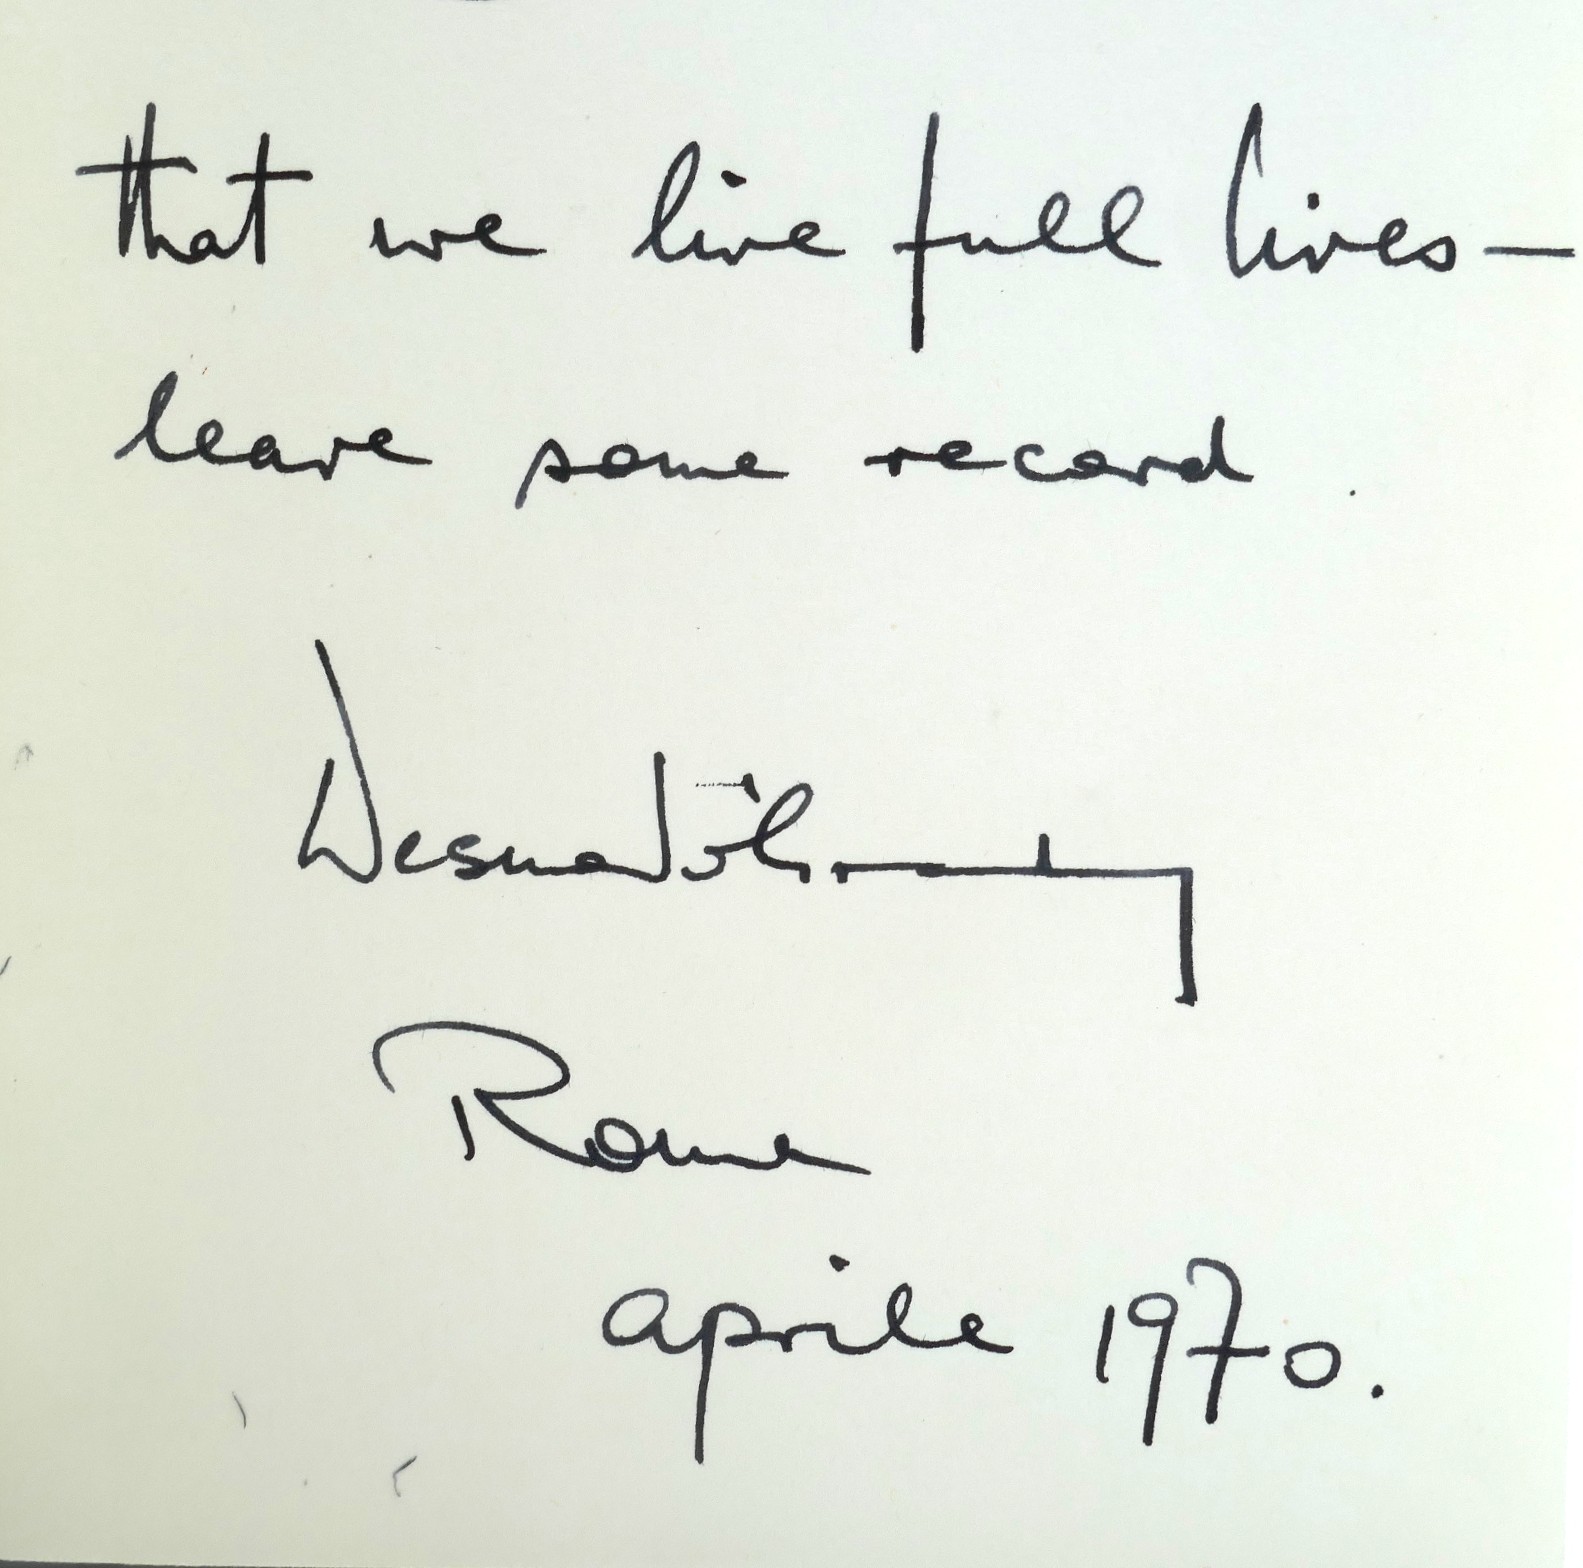 that we live full lives—
leave some record.
Desmond O'Grady
Rome
aprile 1970.